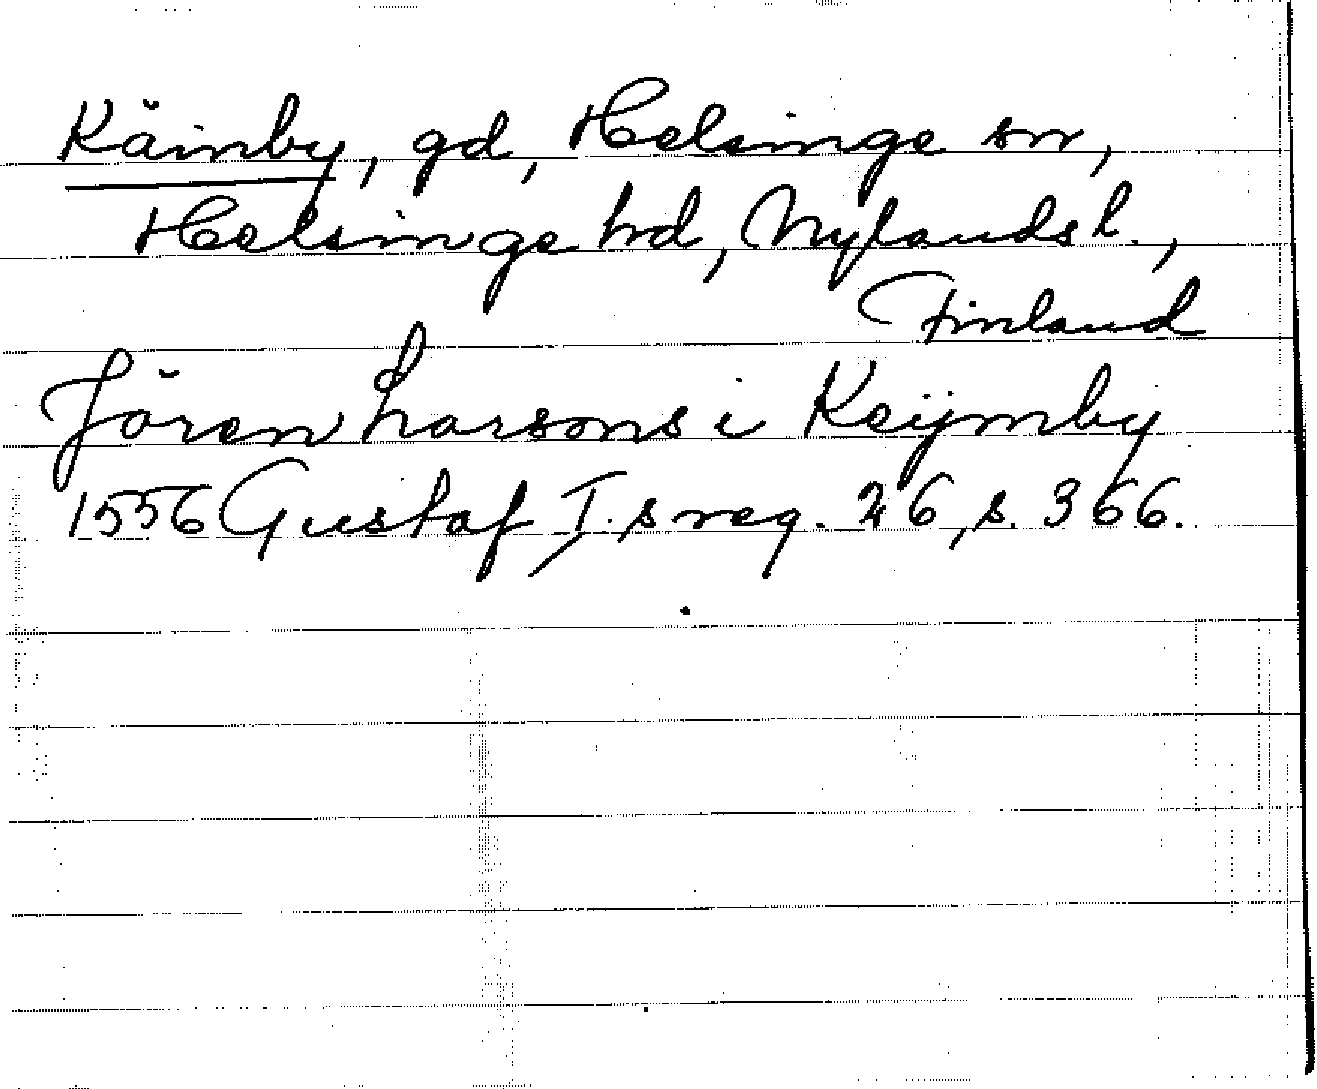 Käinby, gd, Helsinge sn,
Helsinge hd, Nylands l.,
Finland
Jören Larsons i Keÿmby
1556 Gustaf I.s reg. 26, s. 366.